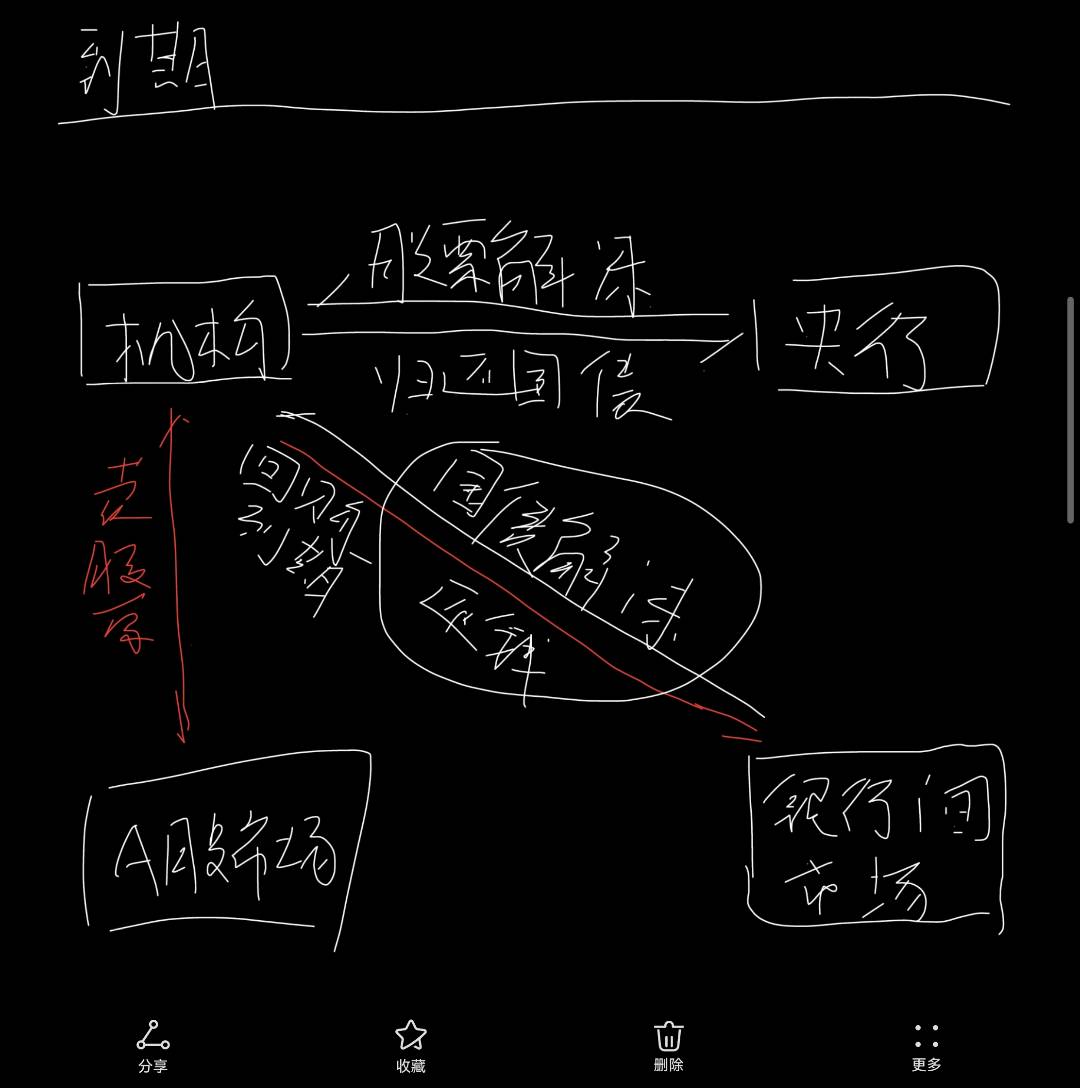 到期
股票解冻
机构
央行
归还国债
卖
股
票
国债解冻
质押
A股市场
银行间
市场
分享
收藏
删除
更多